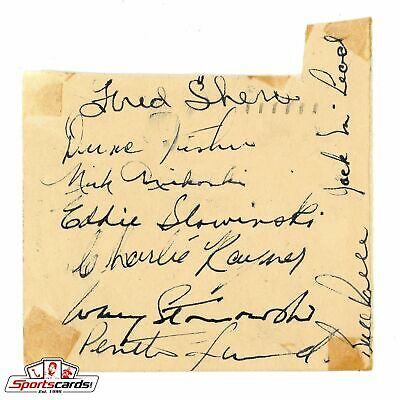 Fred Shero
Dunc Fisher
Nick Mickoski
Eddie Slowinski
Charlie Rayner
Wally Stanowski
Pentti Lund
Jack McLeod
Sportscards!
Est. 1996